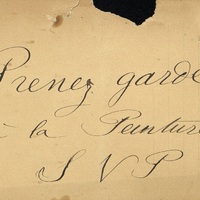 Prenez garde
à la Peinture
S V P